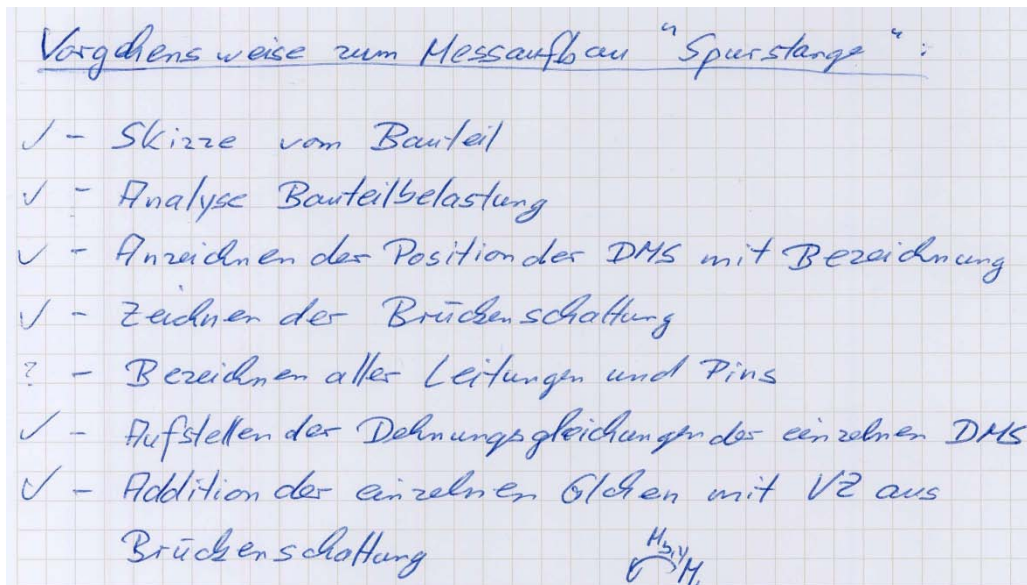 Vorgehensweise zum Messaufbau "Spurstange":
✓ - Skizze vom Bauteil
✓ - Analyse Bauteilbelastung
✓ - Anzeichnen der Position der DMS mit Bezeichnung
✓ - Zeichnen der Brückenschaltung
? - Bezeichnen aller Leitungen und Pins
✓ - Aufstellen der Dehnungsgleichungen der einzelnen DMS
✓ - Addition der einzelnen Glchen mit VZ aus
Brückenschaltung
M_b,y